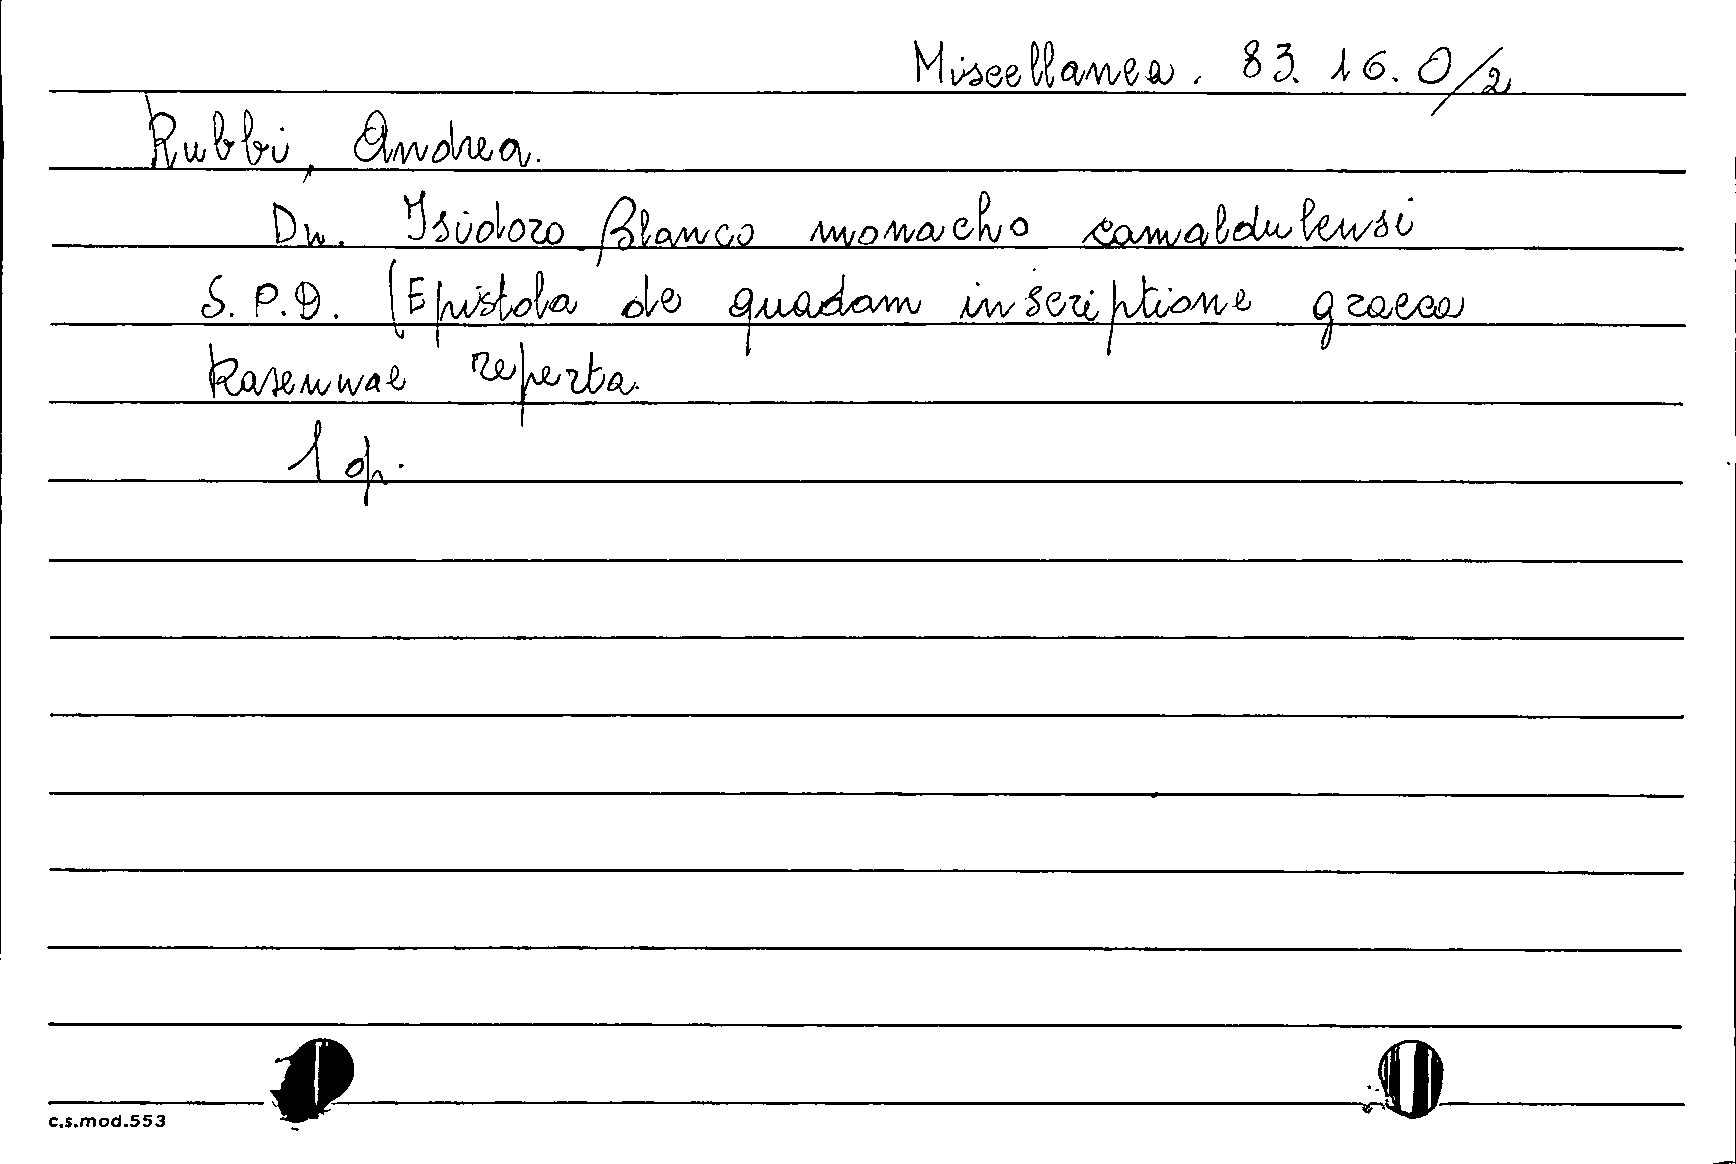 Miscellanea. 83. 16. O/2
Rubbi, Andrea.
Dn. Isidoro Blanco monacho camaldulensi
S. P. D. (Epistola de quadam inscriptione graeca
Ravennae reperta.
1 op.
c.s.mod.553